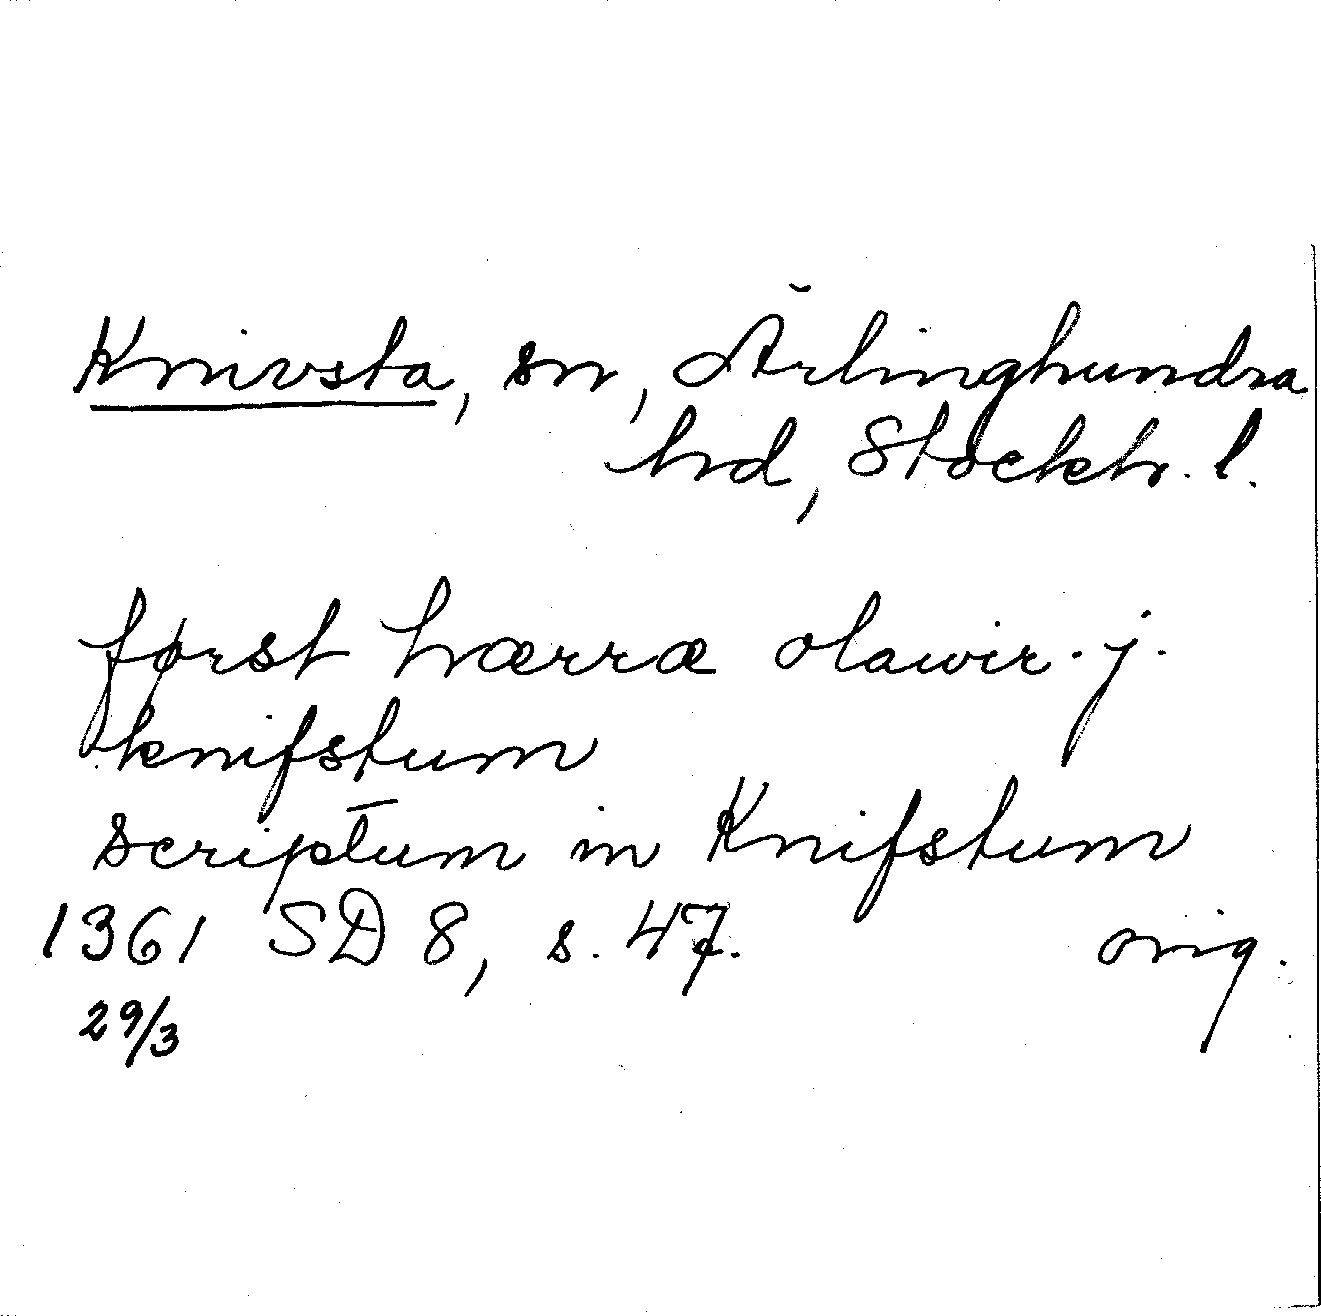 Knivsta, sn, Ärlinghundra
hd, Stockh. l.
først hærræ olawir. j.
knifstum
scriptum in Knifstum
1361 SD 8, s. 47. orig.
29/3